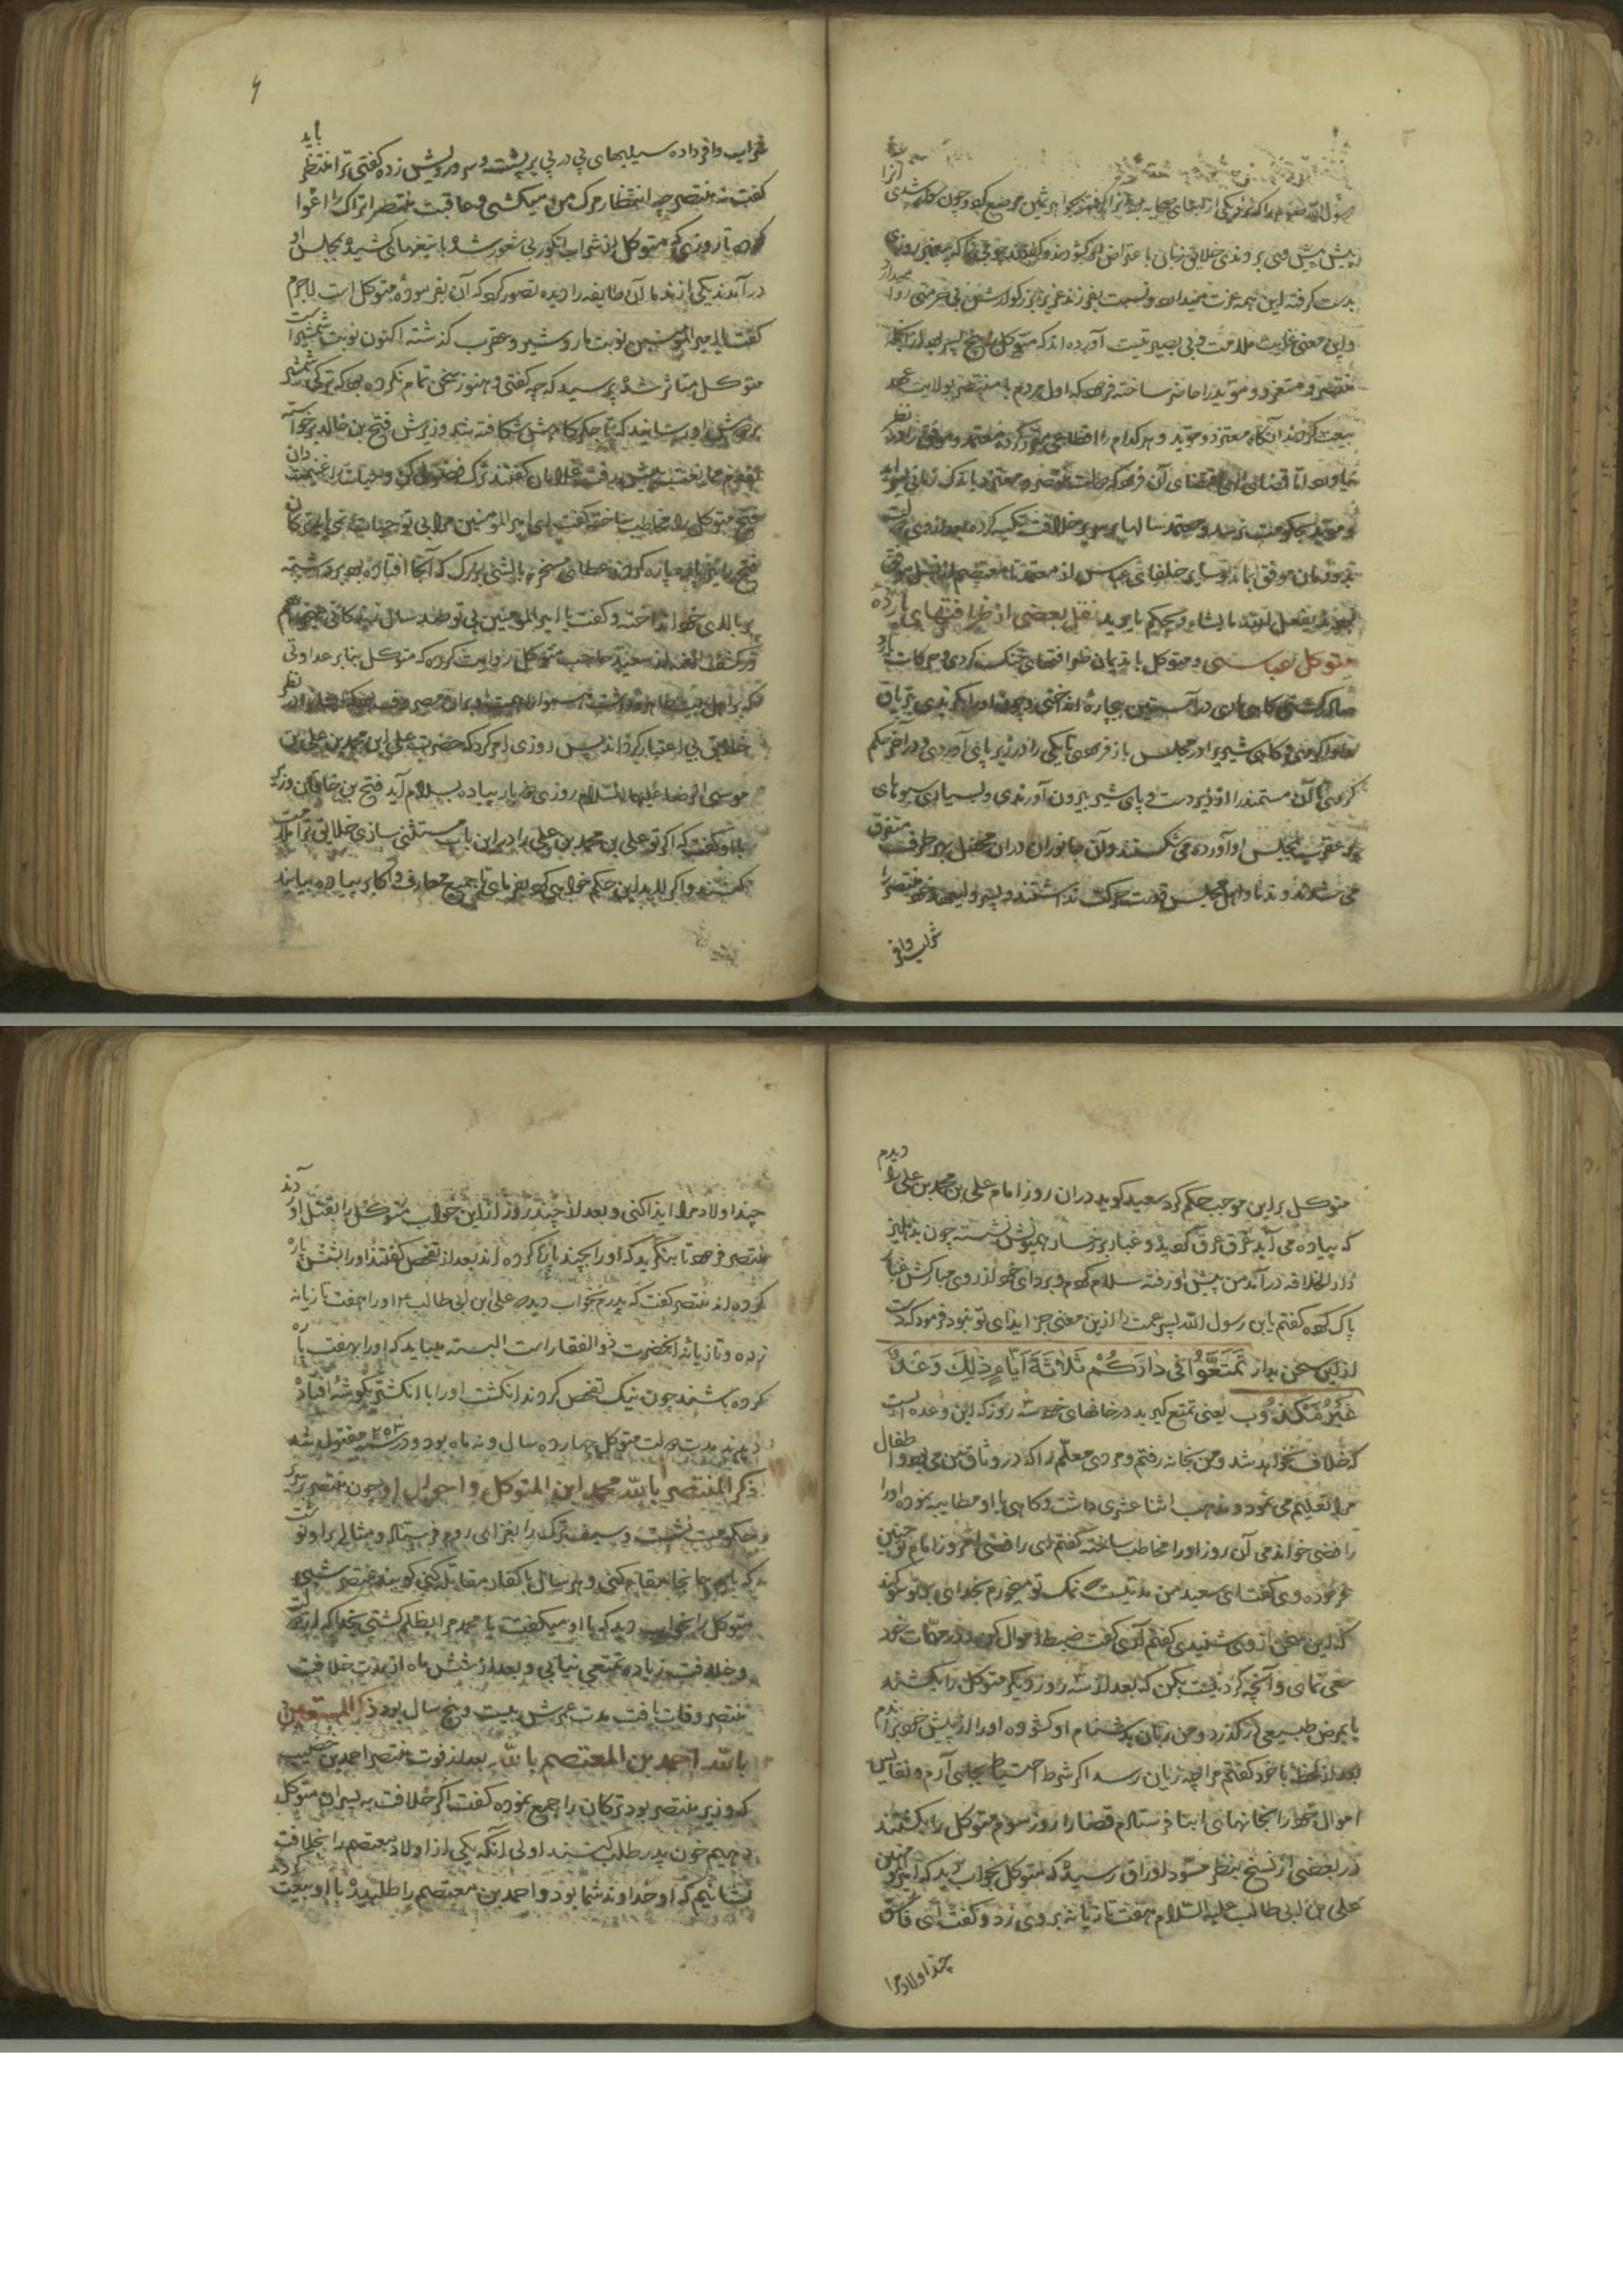 پیش پیش وی بردندی خلایق زبان باعتراض او گشودند و گفتند
بدست گرفته این همه عزت میداری و نسبت بفرزند عزیز بزرگوارش این بی حرمتی روا میداری
و این معنی غایت ملامت و بی بصیرتیست آورده اند که متوکل را پنج پسر بود از آنجمله
منتصر و معتز و مؤید را حاضر ساخته فرمود که اول مردم با منتصر بولایت عهد
بیعت کردند آنگاه معتز و مؤید و هر کدام را اقطاعی مقرر کرده معتمد و موفق را در نظر
نیاورد اما قضای الهی
و مؤید بحکومت نرسید و معتمد سالها بر سریر خلافت تکیه کرده بعد از وی
بودند یفعل الله ما یشاء و یحکم ما یرید نقل بعضی از ظرافتهای بارده
متوکل عباسی و متوکل با ندیمان ظرافتهای خنک کردی و حرکات بارد
گاهی ماری در آستین بیچارهٔ انداختی و چون او را گزیدی بتریاق
مداوا کردی و گاهی شیر در مجلس باز فرمودی تا یکی را در زیر پای آوردی و در آخر حکم
کردی تا آن مستمند را از زیر دست و پای شیر بیرون آوردندی و بسیاری سبوهای
پر عقرب بمجلس او آورده می شکستند و آن جانوران در آن محفل بهر طرف متفرق
می شدند و ندما و اهل مجلس قدرت حرکت نداشتند و پسر و لیعهد خود منتصر را
شراب وافر
شراب وافر داده سیلیهای پی در پی بر پشت و سر و رویش زده گفتی ترا منتظر باید
گفت نه منتصر چه انتظار مرگ من میکشی و عاقبت منتصر اتراک را اغوا
کرده تا روزی که متوکل از شراب انگور بی شعور شده با تیغهای کشیده بمجلس او
در آمدند یکی از ندما آن طایفه را دیده تصور کرد که آن بفرموده متوکل است لاجرم
گفت یا امیر المؤمنین نوبت مار و شیر و عقرب گذشته اکنون نوبت شمشیر است
متوکل متأثر شده پرسید که چه گفتی و هنوز سخن تمام نکرده بود که ترکی شمشیر
بر دوش او رسانید که تا جگرگاهش شکافته شد وزیرش فتح بن خاقان برخواسته
فتح متوکل را مخاطب ساخته گفت ای امیر المؤمنین مرا بی تو حیات نمی باید ترکان
فتح را نیز پاره پاره کردند
بر بالای خود انداخته و گفت یا امیر المؤمنین بی تو صد سال زندگانی میخواهم
در کشف الغمه از سعید حاجب متوکل روایت کرده که متوکل بنابر عداوتی
که با اهل بیت طاهره داشت
خلایق بی اعتبار گرداند پس روزی امر کرد که حضرت علی ابن محمد بن علی بن
موسی الرضا علیهما السلام روزی پیاده بسلام آید فتح بن خاقان وزیر
باو گفت که اگر تو علی بن محمد بن علی را در این باب مستثنی سازی خلایق ترا ملامت
کنند و اگر لابد این حکم خواهی کرد بفرمای تا جمیع معارف و اکابر پیاده بیایند
متوکل بر این موجب حکم کرد سعید گوید در آن روز امام علی بن محمد بن علی را دیدم
که پیاده می آید غرق عرق گردیده و غبار بر رخسار همیونش نشسته چون بدهلیز
دار الخلافه در آمد من پیش او رفته سلام کردم و بردای خود از روی مبارکش غبار
پاک کرده گفتم یابن رسول الله پسر عمت را ازین معنی جز ایذای تو نبود فرمود که
ازین سخن بدار تَمَتَّعُوا فی دارَکُم ثَلاثَةَ اَیَّامٍ ذٰلِکَ وَعْدٌ
غَیْرُ مَکْذُوب یعنی تمتع گیرید در خانهای خود سه روز که این وعده ایست
که خلاف نخواهد شد و من بخانه رفتم و مردی معلم را که در وثاق من می بود و اطفال
مرا تعلیم می نمود و مذهب اثنا عشری داشت و گاهی با او مطایبه نموده او را
رافضی خواندمی آن روز او را مخاطب ساخته گفتم ای رافضی امروز امام تو چنین
فرموده وی گفت ای سعید من مدتیست نمک تو میخورم بخدای بر تو سوگند
که این سخن از وی شنیدی گفتم آری گفت ضبط اموال کن و در مهمات خود
سعی نمای و آنچه کردنیست بکن که بعد از سه روز دیگر متوکل را بکشند
یا بمرض طبیعی در گذرد و من زبان بدشنام او گشوده او را از پیش خود براندم
بعد از لحظهٔ با خود گفتم مرا چه زیان رسد اگر شرط احتیاط بجای آرم و نفایس
اموال خود را بخانهای ابنا فرستادم قضا را روز سوم متوکل را بکشتند
در بعضی از نسخ بنظر مسود اوراق رسیده که متوکل بخواب دید که امیر المؤمنین
علی بن ابی طالب علیه السلام هفت تازیانه بر وی زد و گفت ای فاسق
چند اولاد مرا
چند اولاد مرا ایذا کنی و بعد از چند روز ازین خواب متوکل را بقتل آوردند
منتصر فرمود تا بنگرید که او را بچند پاره کرده اند بعد از تفحص گفتند او را بشش پاره
کرده اند منتصر گفت که پدرم بخواب دیده علی بن ابی طالب ع او را هفت تازیانه
زده و تازیانه آنحضرت ذوالفقار است البته میباید که او را بهفت پاره
کرده باشند چون نیک تفحص کردند انگشت او را با انگشتر بگوشه افتاده
دیدند مدت دولت متوکل چهارده سال و نه ماه بود و در سنه ۲۵۳ مقتول شد
ذکر المنتصر بالله محمد ابن المتوکل و احوال او چون منتصر بر سریر
حکومت نشست وسیف ترک را بغزای روم فرستاد و مثالی بر او نوشت
که باید همانجا مقام کنی و هر سال با کفار مقابله کنی گویند منتصر شبی
متوکل را بخواب دید که با او میگفت یا محمد مرا بظلم کشتی بخدا که از
و خلافت زیاده تمتعی نیابی و بعد از شش ماه از مدت خلافت
منتصر وفات یافت مدت عمرش بیست و پنج سال بود ذکر المستعین
بالله احمد بن المعتصم بالله بعد از فوت منتصر احمد بن خصیب
که وزیر منتصر بود ترکان را جمع نموده گفت اگر خلافت به پسران متوکل
دهیم خون پدر طلب کنند اولی آنکه یکی از اولاد معتصم را بخلافت
نشانیم که او خداوند شما بود و احمد بن معتصم را طلبیده با او بیعت کردند